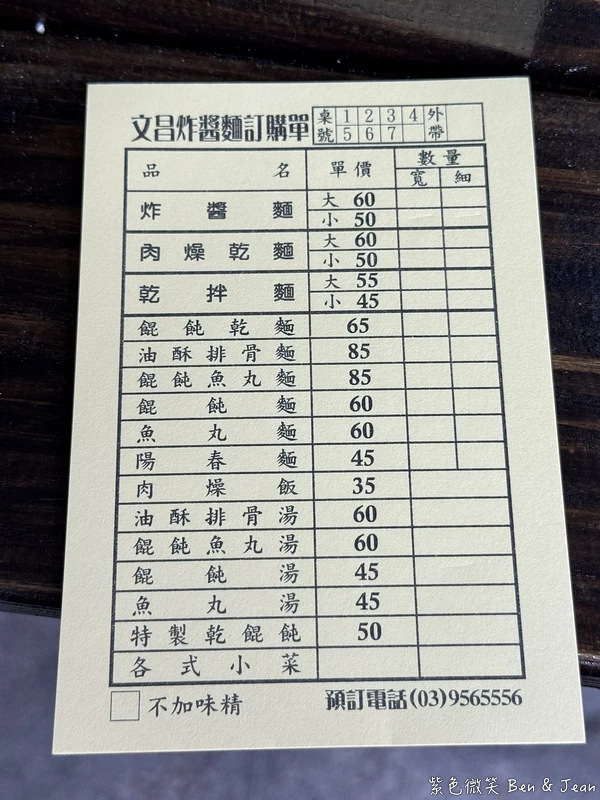 文昌炸醬麵訂購單 桌號 1 2 3 4 5 6 7 外帶
品名 單價 數量
寬 細
炸醬麵 大 60
小 50
肉燥乾麵 大 60
小 50
乾拌麵 大 55
小 45
餛飩乾麵 65
油酥排骨麵 85
餛飩魚丸麵 85
餛飩麵 60
魚丸麵 60
陽春麵 45
肉燥飯 35
油酥排骨湯 60
餛飩魚丸湯 60
餛飩湯 45
魚丸湯 45
特製乾餛飩 50
各式小菜
不加味精 預訂電話(03)9565556
紫色微笑 Ben & Jean